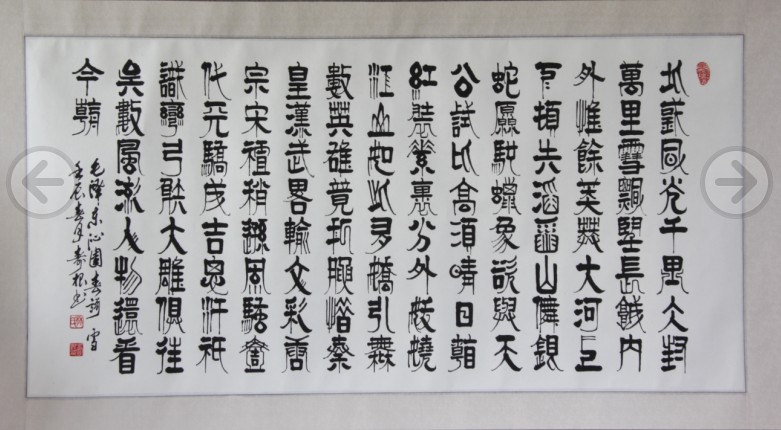 北國風光千里冰封
萬里雪飄望長城内
外惟餘莽莽大河上
下頓失滔滔山舞銀
蛇原馳蠟象欲與天
公試比高須晴日看
紅裝素裹分外妖嬈
江山如此多嬌引無
數英雄競折腰惜秦
皇漢武略輸文彩唐
宗宋祖稍遜風騷壹
代天驕成吉思汗祇
識彎弓射大雕俱往
矣數風流人物還看
今朝
毛澤東沁園春詩 雪
壬辰春月書